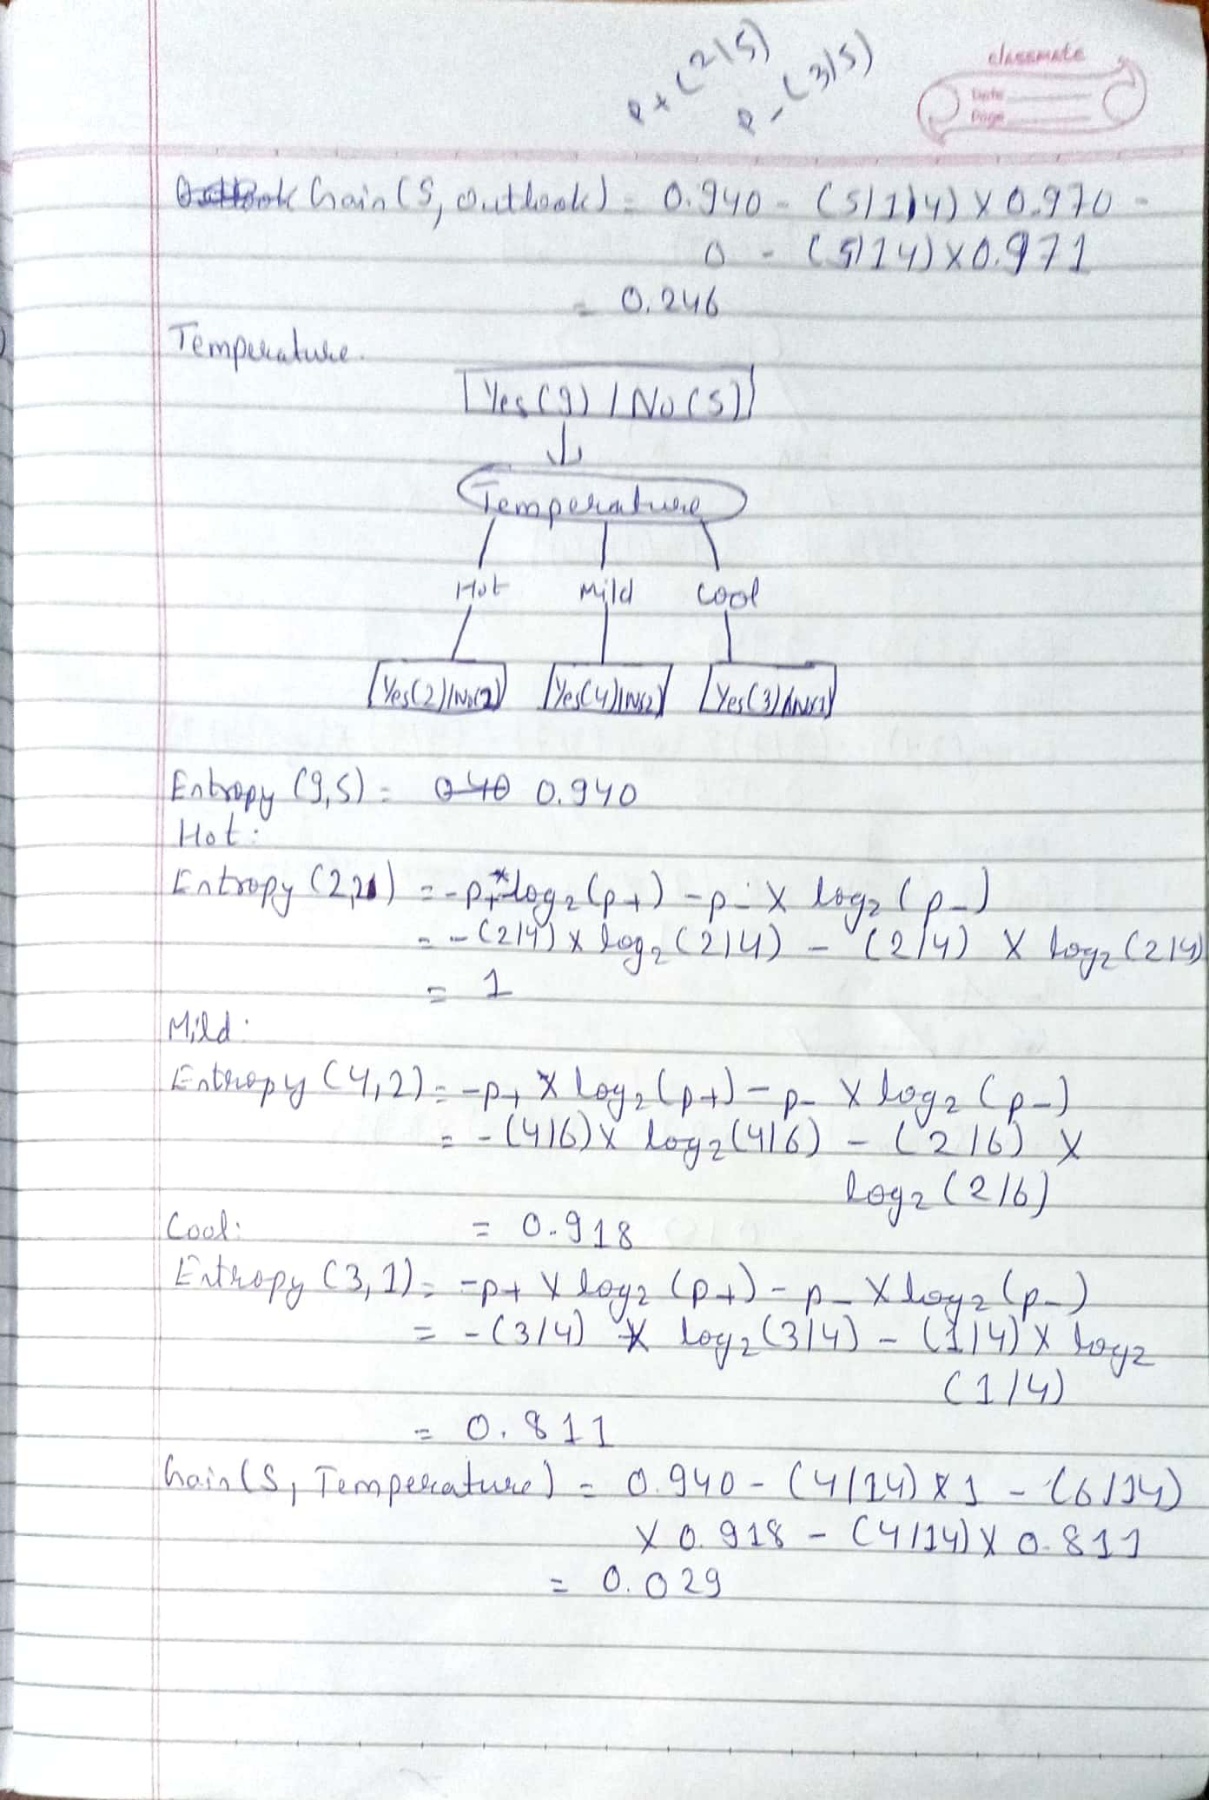 P+(2/5)
P-(3/5)
classmate
Date
Page
Gain(S, Outlook) = 0.940 - (5/14) X 0.970 -
0 - (5/14) X 0.971
= 0.246
Temperature.
Yes(9) / No(5)
Temperature
Hot Mild Cool
Yes(2)/No(2) Yes(4)/No(2) Yes(3)/No(1)
Entropy (9,5) = 0.940
Hot:
Entropy (2,2) = -P+*log2(p+) - p- X log2(p-)
= -(2/4) X log2(2/4) - (2/4) X log2(2/4)
= 1
Mild:
Entropy (4,2) = -p+ X log2(p+) - p- X log2(p-)
= -(4/6) X log2(4/6) - (2/6) X
log2(2/6)
= 0.918
Cool:
Entropy (3,1) = -p+ X log2(p+) - p- X log2(p-)
= -(3/4) X log2(3/4) - (1/4) X log2
(1/4)
= 0.811
Gain(S, Temperature) = 0.940 - (4/14) X 1 - (6/14)
X 0.918 - (4/14) X 0.811
= 0.029